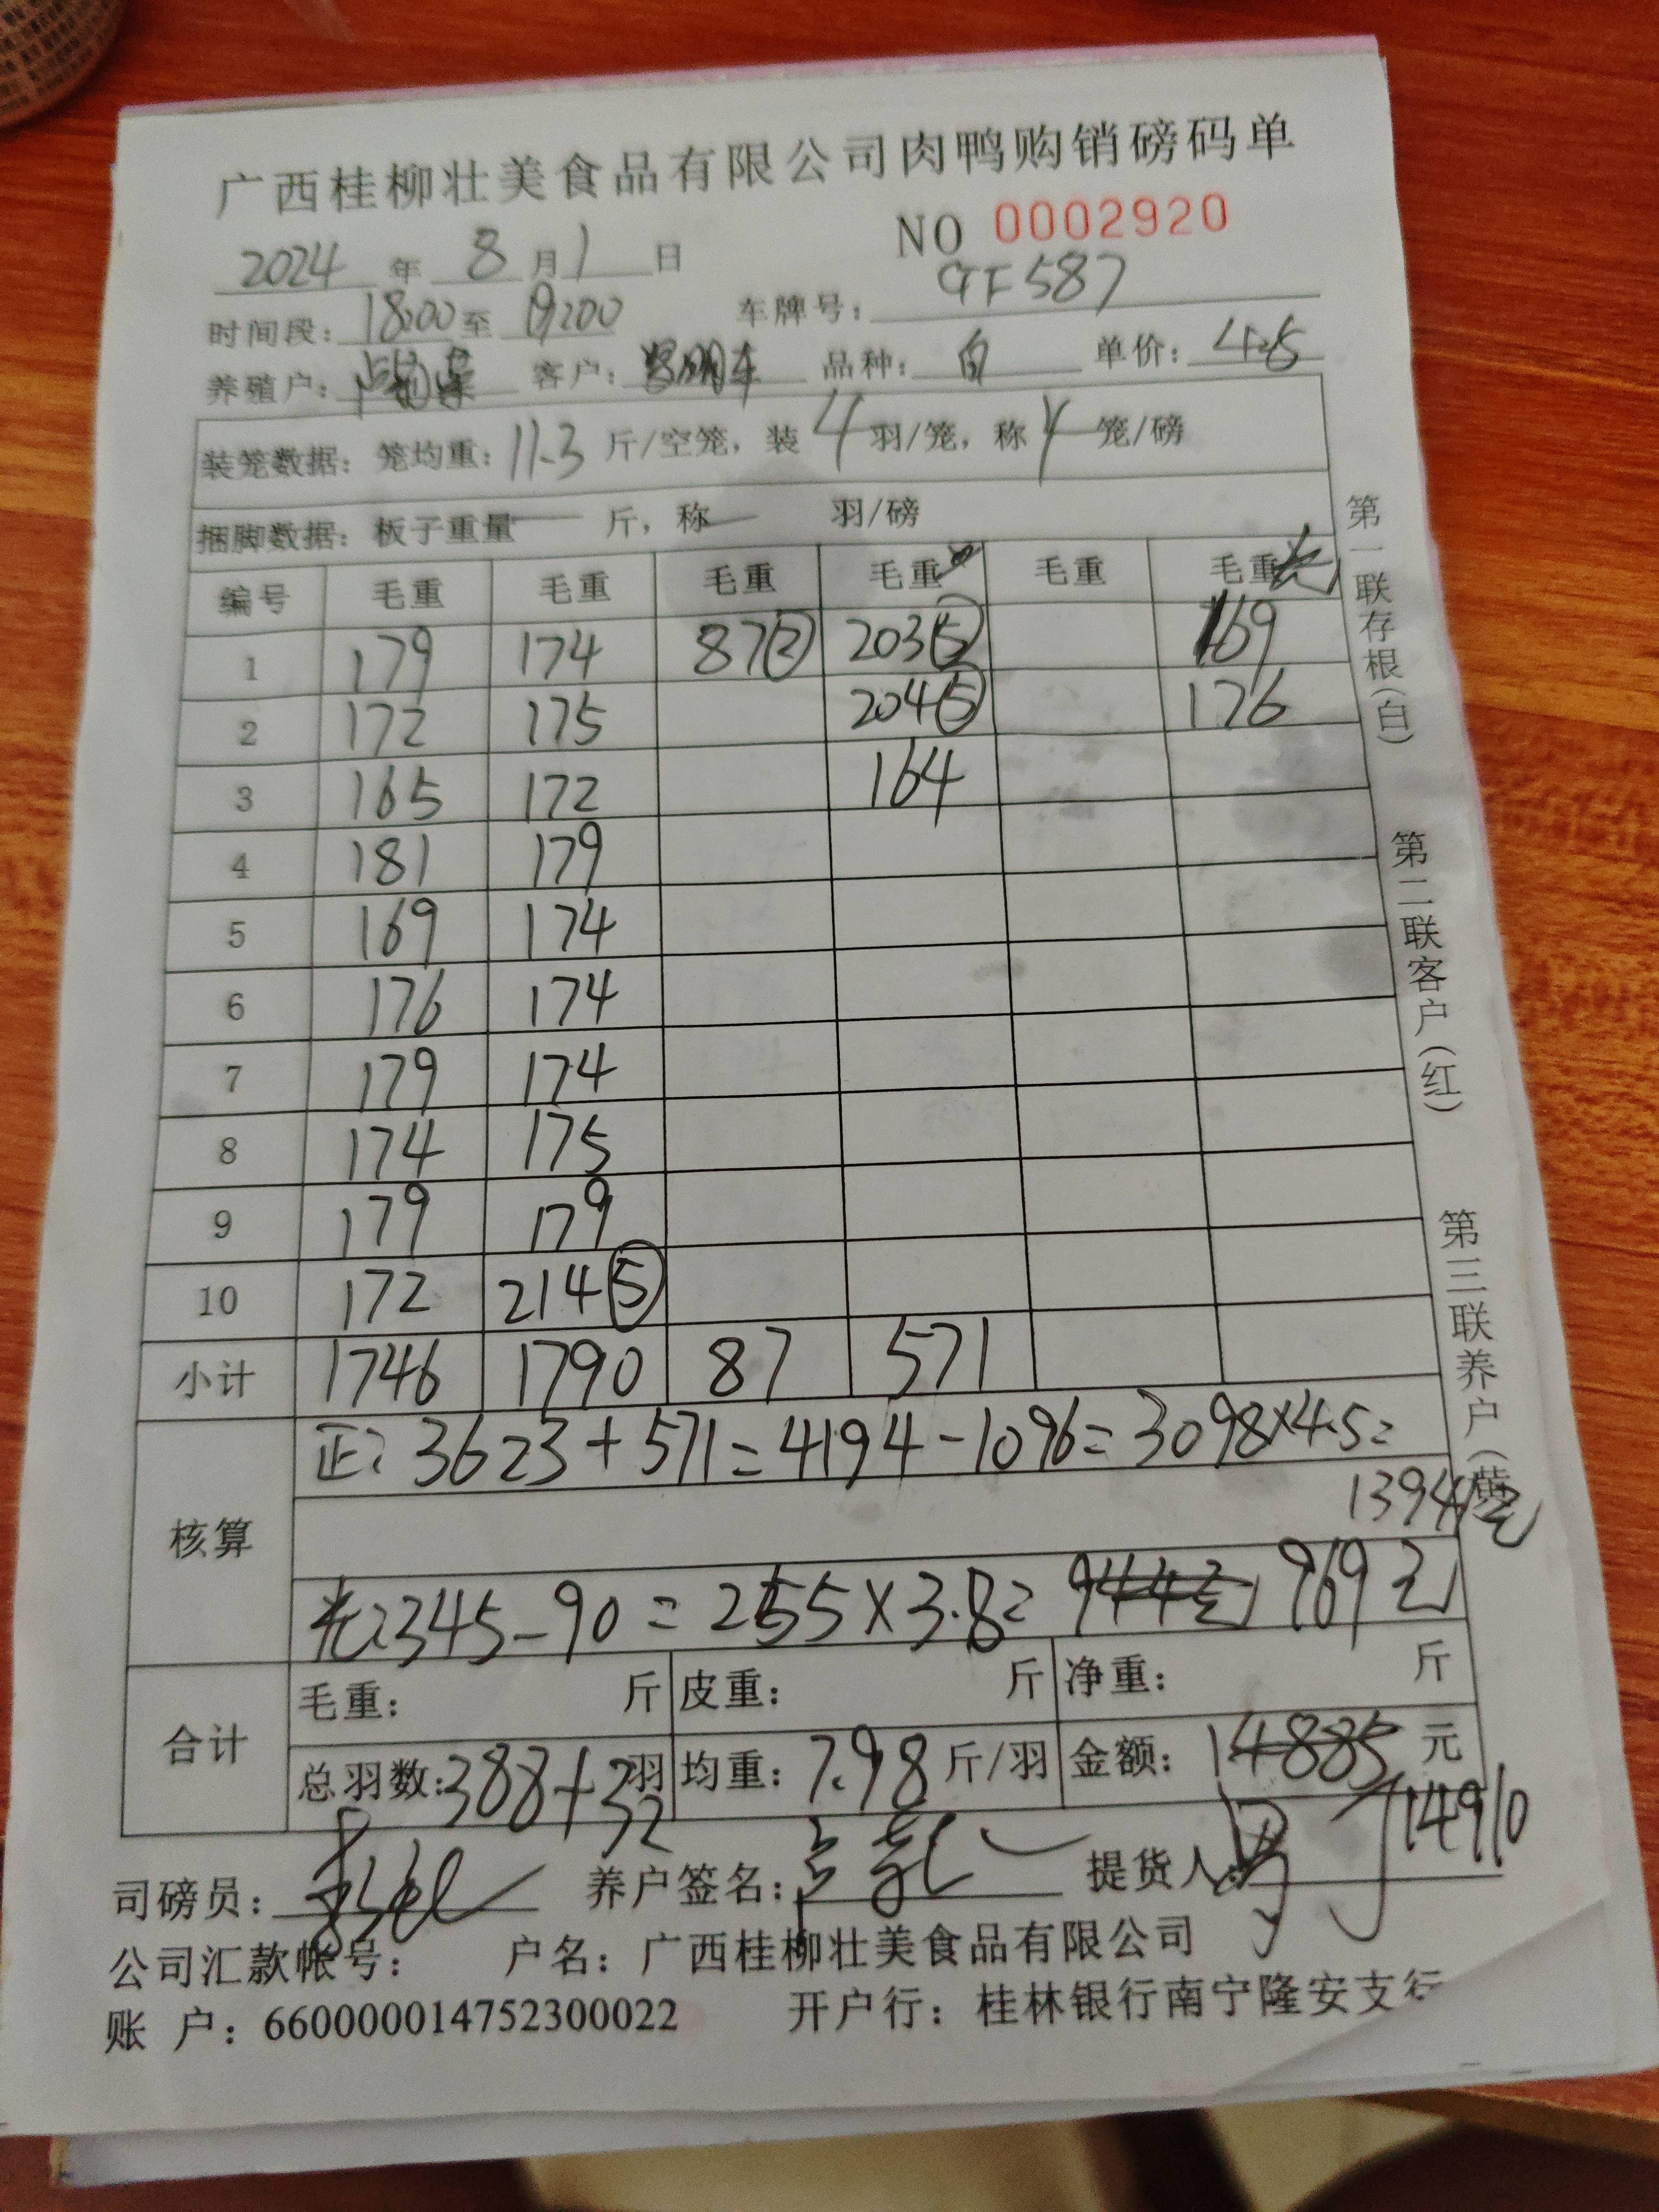 广西桂柳壮美食品有限公司肉鸭购销磅码单
NO 0002920
2024 年 8 月 1 日
时间段: 18:00 至 19:00 车牌号: GTF587
养殖户: 客户: 品种: 白 单价: 4.5
装笼数据: 笼均重: 11.3 斤/空笼, 装 4 羽/笼, 称 4 笼/磅
捆脚数据: 板子重量 — 斤, 称 — 羽/磅
编号 毛重 毛重 毛重 毛重 毛重 毛重
1 179 174 87② 203⑤ 169
2 172 175 204⑤ 176
3 165 172 164
4 181 179
5 169 174
6 176 174
7 179 174
8 174 175
9 179 179
10 172 214⑤
小计 1746 1790 87 571
核算
正: 3623+571=4194-1096=3098×4.5=
13941元
345-90=255×3.8= 944元 969元
合计
毛重: 斤 皮重: 斤 净重: 斤
总羽数: 388+32 羽 均重: 7.98 斤/羽 金额: 14885 元
14910
司磅员: 养户签名: 提货人:
公司汇款帐号: 户名: 广西桂柳壮美食品有限公司
账 户: 660000014752300022 开户行: 桂林银行南宁隆安支行
第一联存根(白)
第二联客户(红)
第三联养户(黄)